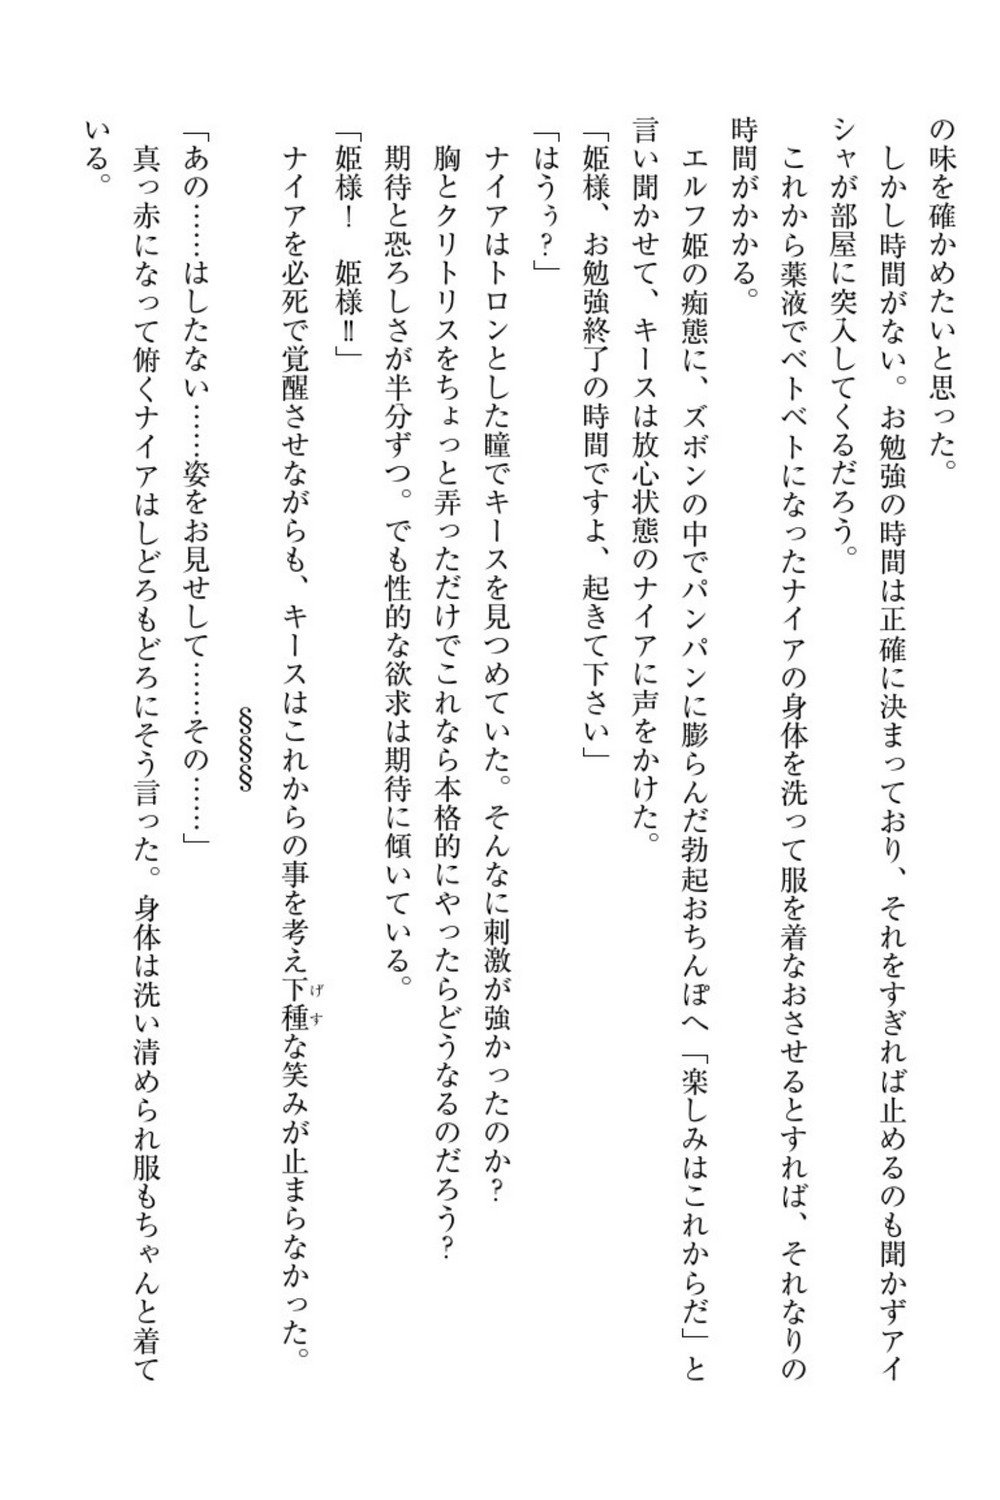 の味を確かめたいと思った。
しかし時間がない。お勉強の時間は正確に決まっており、それをすぎれば止めるのも聞かずアイ
シャが部屋に突入してくるだろう。
これから薬液でベトベトになったナイアの身体を洗って服を着なおさせるとすれば、それなりの
時間がかかる。
エルフ姫の痴態に、ズボンの中でパンパンに膨らんだ勃起おちんぽへ「楽しみはこれからだ」と
言い聞かせて、キースは放心状態のナイアに声をかけた。
「姫様、お勉強終了の時間ですよ、起きて下さい」
「はうぅ?」
ナイアはトロンとした瞳でキースを見つめていた。そんなに刺激が強かったのか?
胸とクリトリスをちょっと弄っただけでこれなら本格的にやったらどうなるのだろう?
期待と恐ろしさが半分ずつ。でも性的な欲求は期待に傾いている。
「姫様! 姫様‼」
ナイアを必死で覚醒させながらも、キースはこれからの事を考え下種な笑みが止まらなかった。
げす
§§§§
「あの……はしたない……姿をお見せして……その……」
真っ赤になって俯くナイアはしどろもどろにそう言った。身体は洗い清められ服もちゃんと着て
いる。